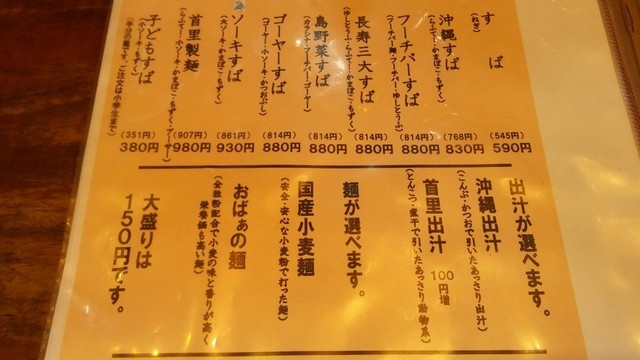 すば
(ねぎ)
(545円)
590円
沖縄すば
(らふてー・かまぼこ・もずく)
(768円)
830円
フーチバーすば
(フーチバー麺・フーチバー・ゆしとうふ)
(814円)
880円
長寿三大すば
(ゆしとうふ・らふてー・かまぼこ・もずく)
(814円)
880円
島野菜すば
(814円)
880円
ゴーヤーすば
(ゴーヤー・小ソーキ・かつおぶし)
(814円)
880円
ソーキすば
(大ソーキ・かまぼこ・もずく)
(861円)
930円
首里製麺
(907円)
980円
子どもすば
(小ソーキ・もずく)
(半分の量です。ご注文は小学生まで)
(351円)
380円
出汁が選べます。
沖縄出汁
(こんぶ・かつおで引いたあっさり出汁)
首里出汁
100円増
(とんこつ・煮干で引いたあっさり動物系)
麺が選べます。
国産小麦麺
(安全・安心な小麦粉で打った麺)
おばぁの麺
(全粒粉配合で小麦の味と香りが高く
栄養価も高い麺)
大盛りは
150円です。